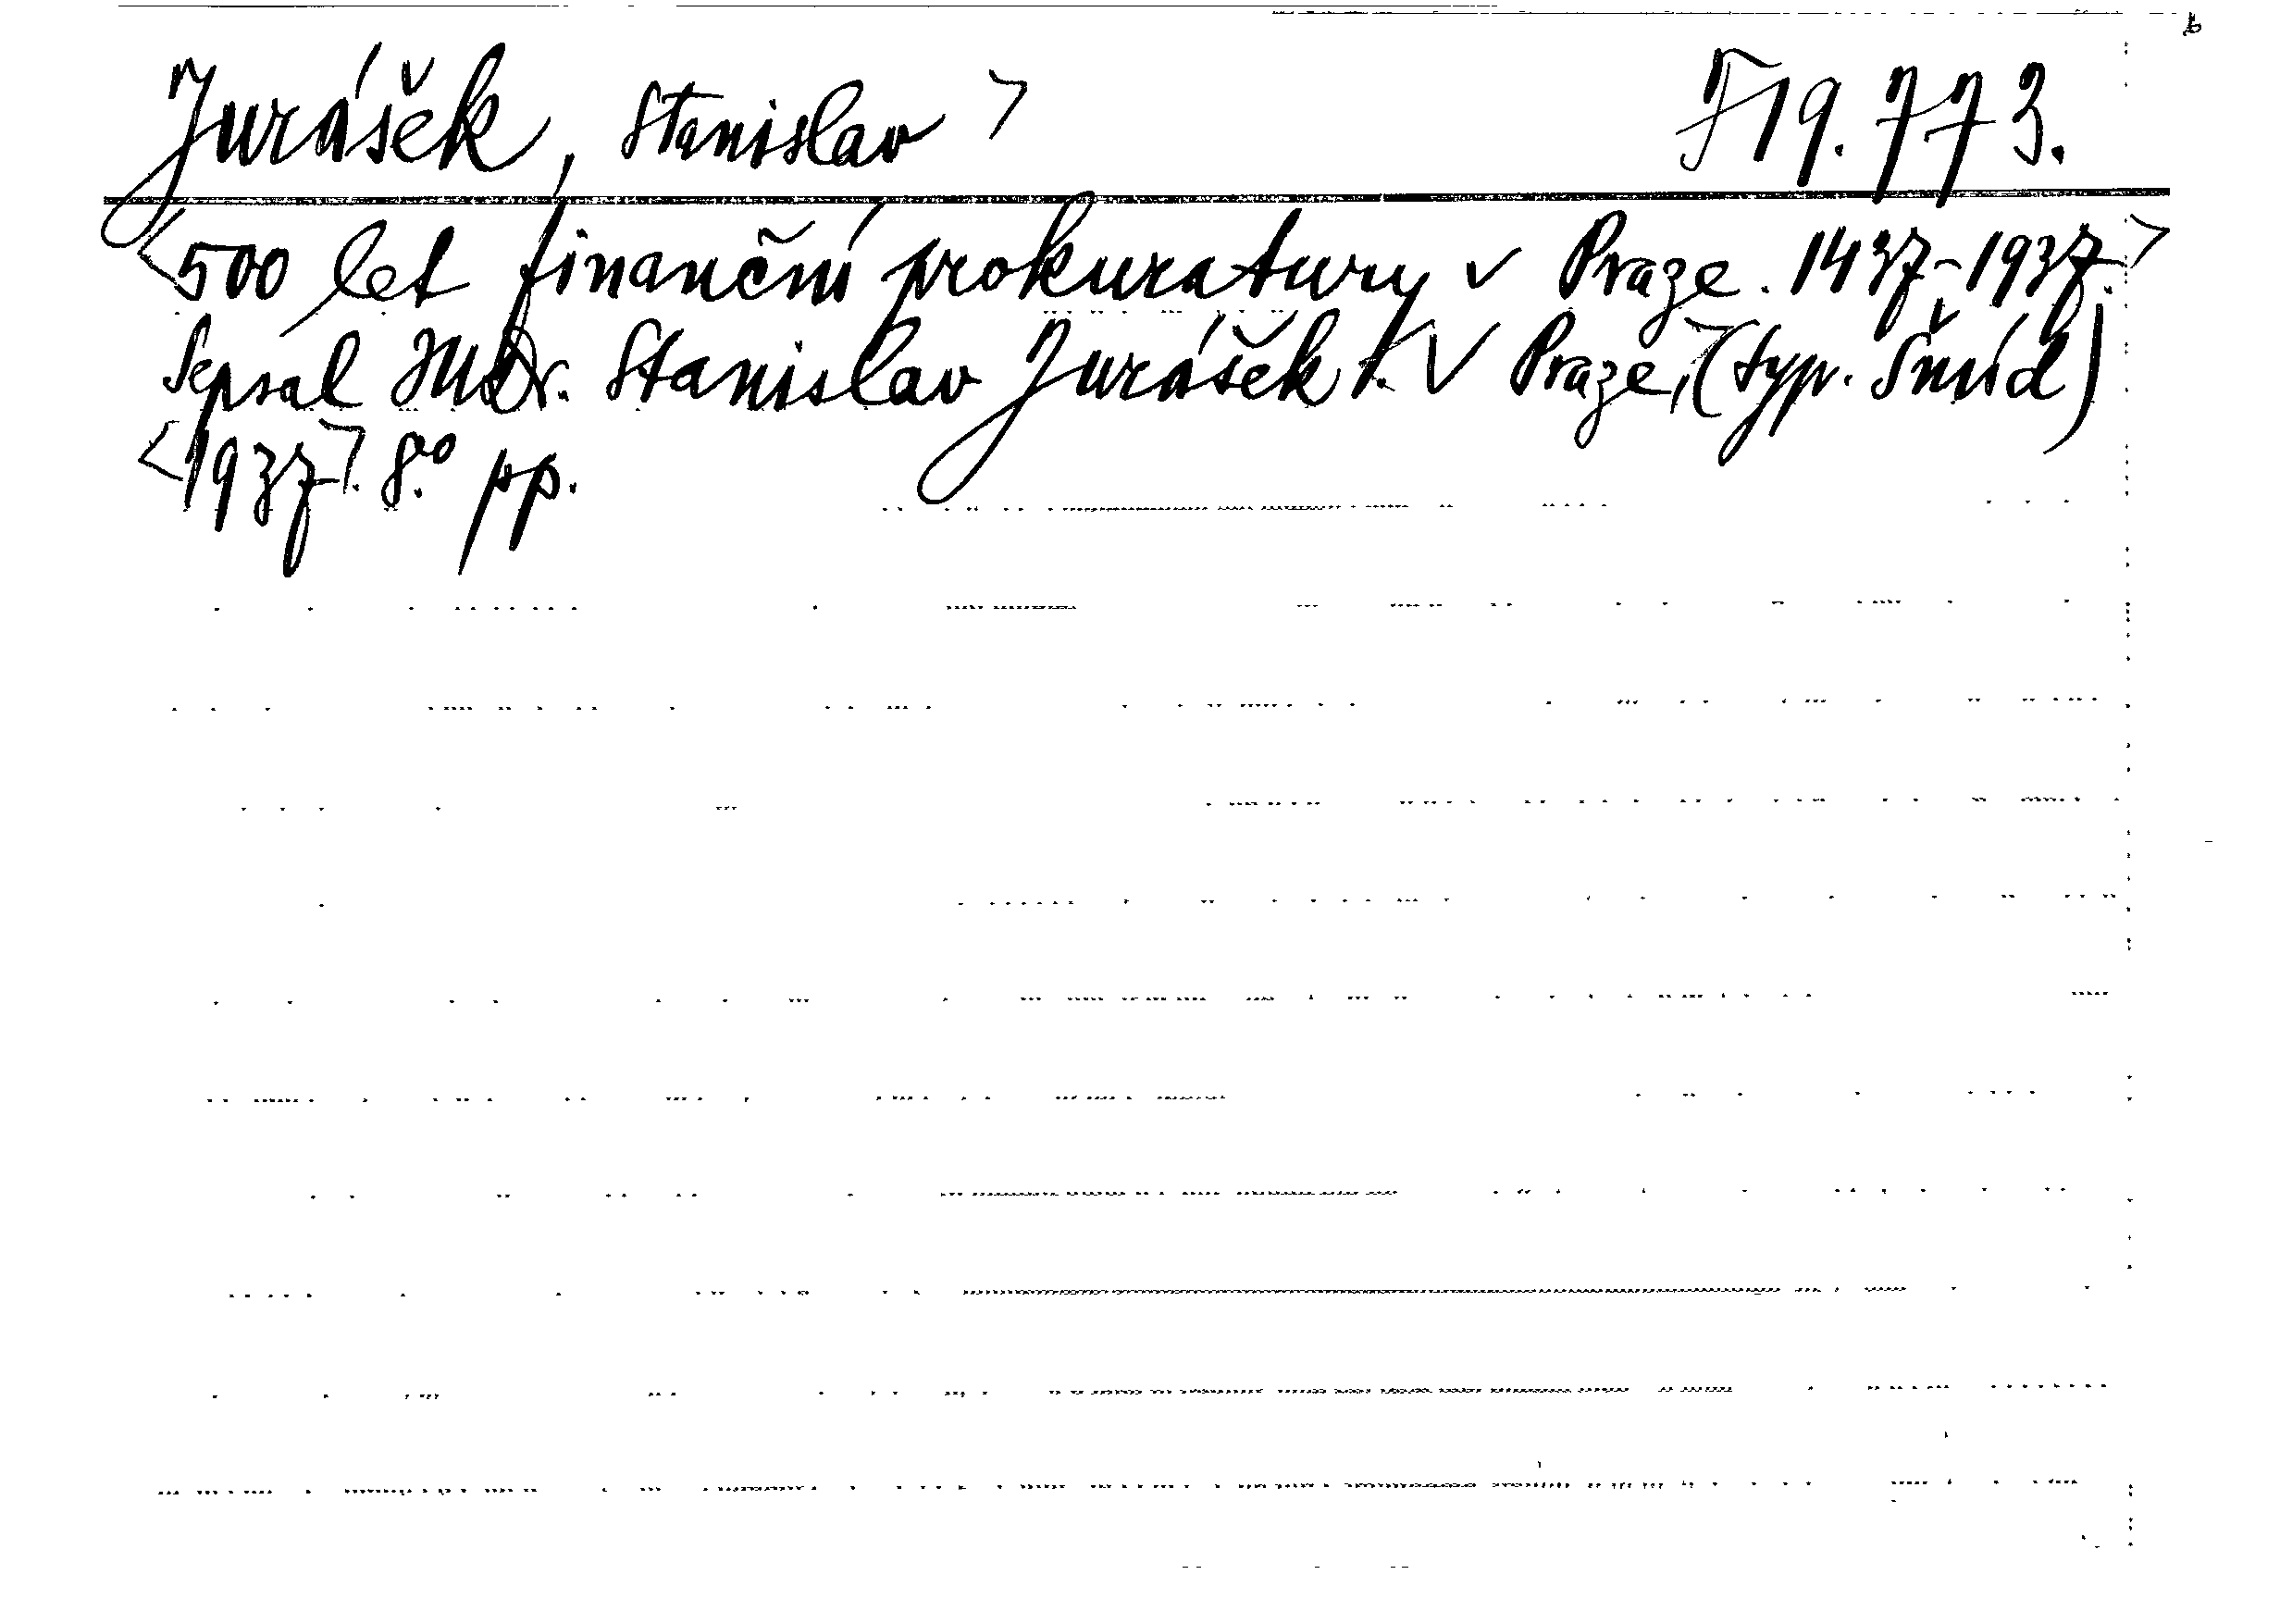 Jurášek, Stanislav> F 19.773.
<500 let finanční prokuratury v Praze. 1437-1937.>
Sepsal JUDr. Stanislav Jurášek. <V Praze,> (typ. Šmíd)
<1937>. 8.° pp.